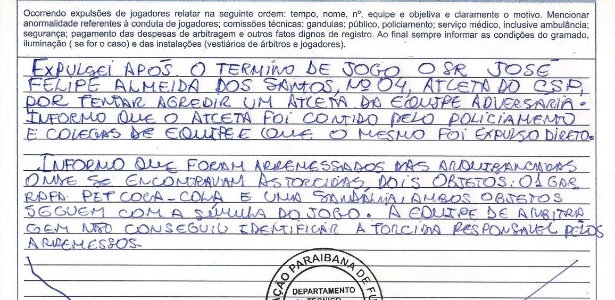 Ocorrendo expulsões de jogadores relatar na seguinte ordem: tempo, nome, nº, equipe e objetiva e claramente o motivo. Mencionar
anormalidade referentes à conduta de jogadores; comissões técnicas: gandulas; público, policiamento; serviço médico, inclusive ambulância;
segurança; pagamento das despesas de arbitragem e outros fatos dignos de registro. Ao final sempre informar as condições do gramado,
iluminação ( se for o caso) e das instalações (vestiários de árbitros e jogadores).
EXPULSEI APÓS O TERMINO DE JOGO O SR JOSÉ
FELIPE ALMEIDA DOS SANTOS, Nº 04, ATLETA DO CSP,
POR TENTAR AGREDIR UM ATLETA DA EQUIPE ADVERSARIA.
INFORMO QUE O ATLETA FOI CONTIDO PELO POLICIAMENTO
E COLEGAS DE EQUIPE E QUE O MESMO FOI EXPULSO DIRETO.
INFORMO QUE FORAM ARREMESSADOS DAS ARQUIBANCADAS
ONDE SE ENCONTRAVAM AS TORCIDAS, DOIS OBJETOS: 01 GAR
RAFA PET COCA-COLA E UMA SANDALIA, AMBOS OBJETOS
SEGUEM COM A SÚMULA DO JOGO. A EQUIPE DE ARBITRA
GEM NÃO CONSEGUIU IDENTIFICAR A TORCIDA RESPONSAVEL PELOS
ARREMESSOS.
AÇÃO PARAIBANA DE FU
DEPARTAMENTO